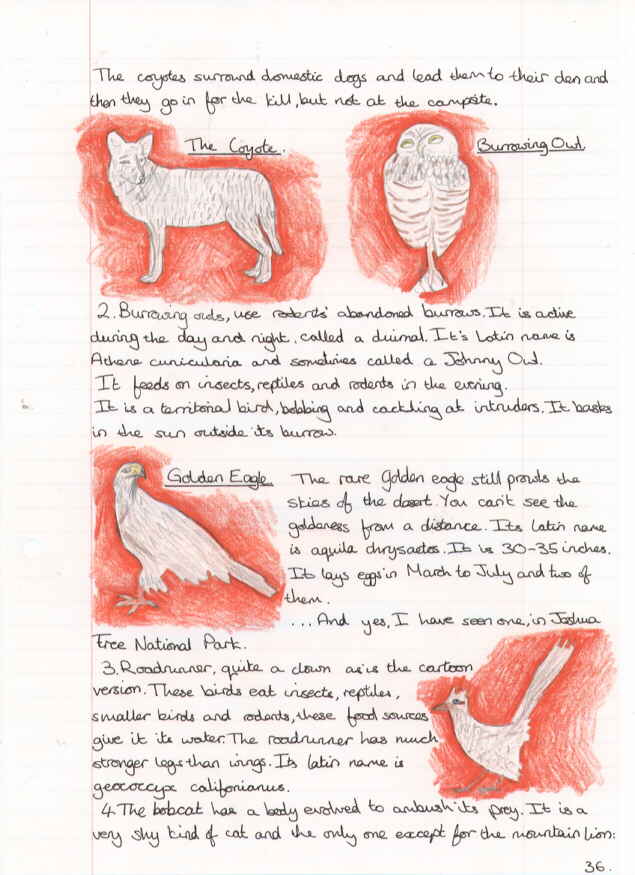 The coyotes surround domestic dogs and lead them to their den and
then they go in for the kill, but not at the campsite.
The Coyote.
Burrowing Owl
2. Burrowing owls, use rodents' abandoned burrows. It is active
during the day and night, called a duimal. It's Latin name is
Athene cunicularia and sometimes called a Johnny Owl.
It feeds on insects, reptiles and rodents in the evening.
It is a territorial bird, bobbing and cackling at intruders. It basks
in the sun outside its burrow.
Golden Eagle
The rare golden eagle still prowls the
skies of the desert. You can't see the
goldeness from a distance. Its latin name
is aquila chrysaetos. It is 30-35 inches.
It lays eggs in March to July and two of
them.
...And yes, I have seen one, in Joshua
Tree National Park.
3. Roadrunner, quite a clown as is the cartoon
version. These birds eat insects, reptiles,
smaller birds and rodents, these food sources
give it its water. The roadrunner has much
stronger legs than wings. Its latin name is
geococcyx califonianus.
4. The bobcat has a body evolved to ambush its prey. It is a
very shy kind of cat and the only one except for the mountain lion:
36.